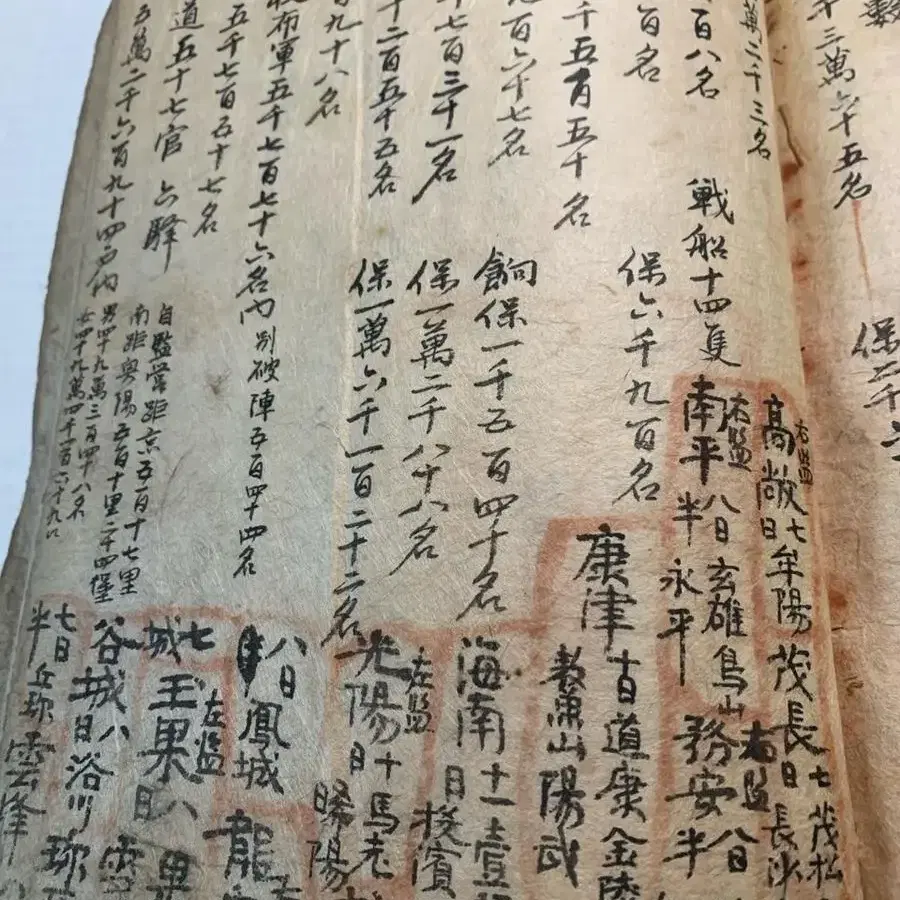 數
十三萬六千五名
保二千
萬二千三名
百八名
戰船十四隻
百名
保六千九百名
千五百五十名
百六十七名
餉保一千五百四十名
七百三十一名
保一萬二千八十八名
十二百五十五名
保一萬六千一百二十二名
九十八名
布軍五千七百七十六名內
別破陣五百四十四名
五千七百五十七名
道五十七官 六驛
五萬二千六百九十四戶內
自監營距京五百十七里
南距興陽五百十里二十四堡
男四十九萬三百四十八名
女四十九萬四千一百六十九口
右監
高敞七日牟陽
茂長七日長沙
茂松
右監
南平半八日玄雄鳥山
永平
右監
務安半八日
康津十日道康金陵
海南十一日
左監
光陽十日馬老
晞陽
八日鳳城
龍
左監
玉果八日
七
城
谷城八日浴川
七日
半
雲峰